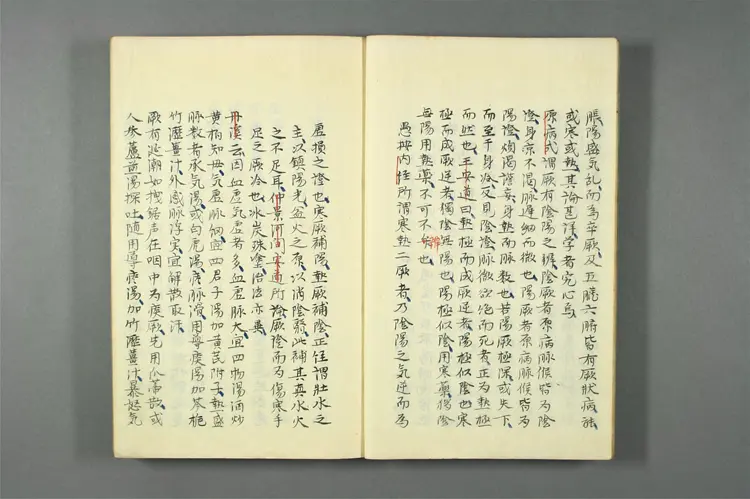 脹陽盛気乱而為卒厥及五臓六腑皆有厥状病能
或寒或熱其論甚詳学者宛心焉
原病式謂厥有陰陽之弁陰厥者原病脉候皆為陰
證身凉不渇脉遅細而微也陽厥者原病脉候皆為
陽證煩渇譫妄身熱而脉数也若陽厥極深或失下
而至于身冷反見陰證脉微欲絶而死者正為熱極
而然也王安道曰熱極而成厥逆者陽極似陰也寒
極而成厥逆者獨陰無陽也陽極似陰用寒薬獨陰
無陽用熱薬不可不弁也
愚按内経所謂寒熱二厥者乃陰陽之気逆而為
虚損之證也寒厥補陽熱厥補陰正経謂壮水之
主以鎮陽光益火之原以消陰翳此補其真水火
之不足耳仲景河間安道所論厥陰而為傷寒手
足之厥冷也冰炭殊塗治法亦異
丹溪云因血虚気虚者多血虚脉大宜四物湯酒炒
黄栢知母気虚脉細宜四君子湯加黄芪附子熱盛
脉数者承気湯或白虎湯痰脉滑用導痰湯加芩梔
竹瀝薑汁外感脉浮実宜解散取汗
厥有涎潮如拽鋸声在咽中為痰厥先用瓜蒂散或
人参蘆煎湯探吐随用導痰湯加竹瀝薑汁暴怒気